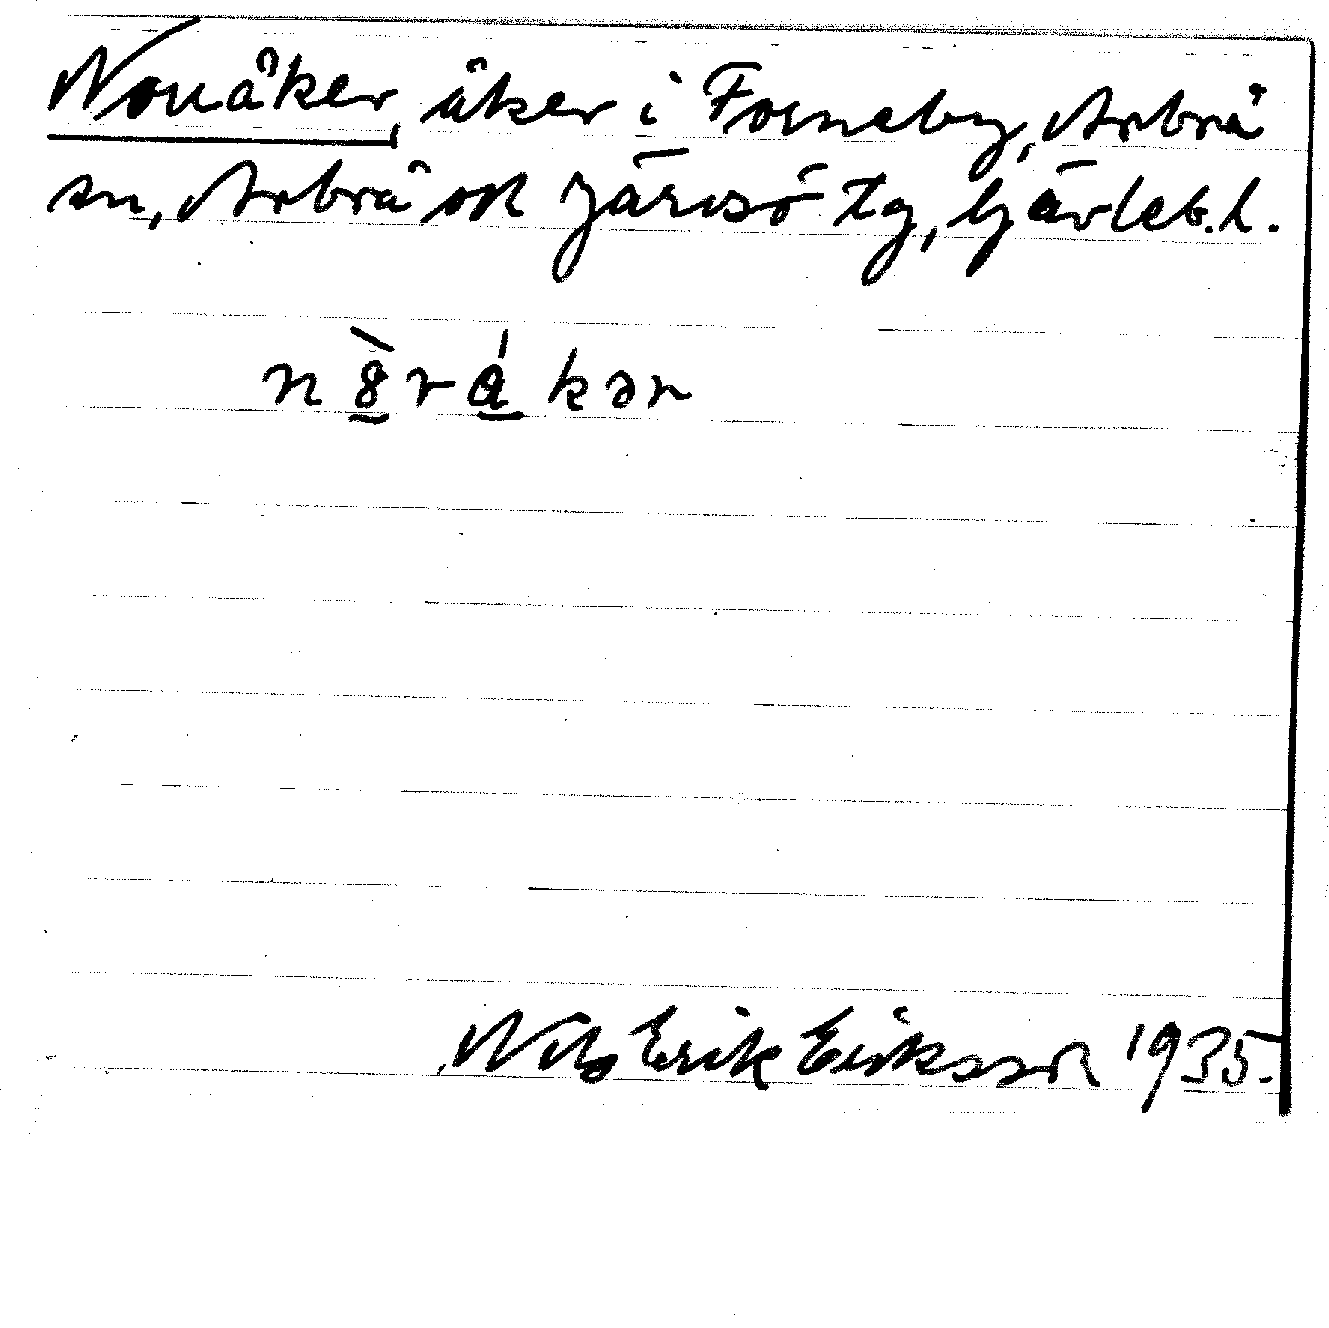 Norråker, åker i Forneby, Arbrå
sn, Arbrå och Järvsö tg, Gävleb. l.
n 8̠̀ r á̠ k ə r
Nils Erik Eriksson 1935.